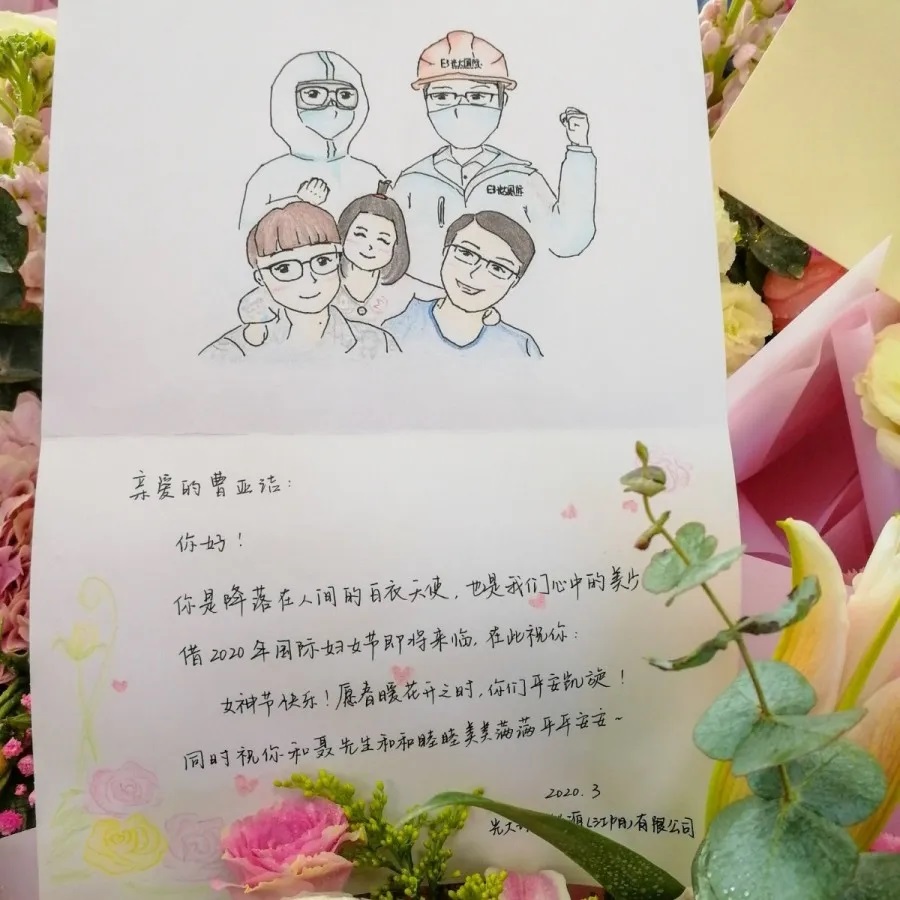 光大国际
光大国际
亲爱的曹亚洁:
你好!
你是降落在人间的白衣天使,也是我们心中的美
借2020年国际妇女节即将来临,在此祝你:
女神节快乐!愿春暖花开之时,你们平安凯旋!
同时祝你和聂先生和和睦睦美美满满平平安安~
2020.3
光大 源(江阴)有限公司